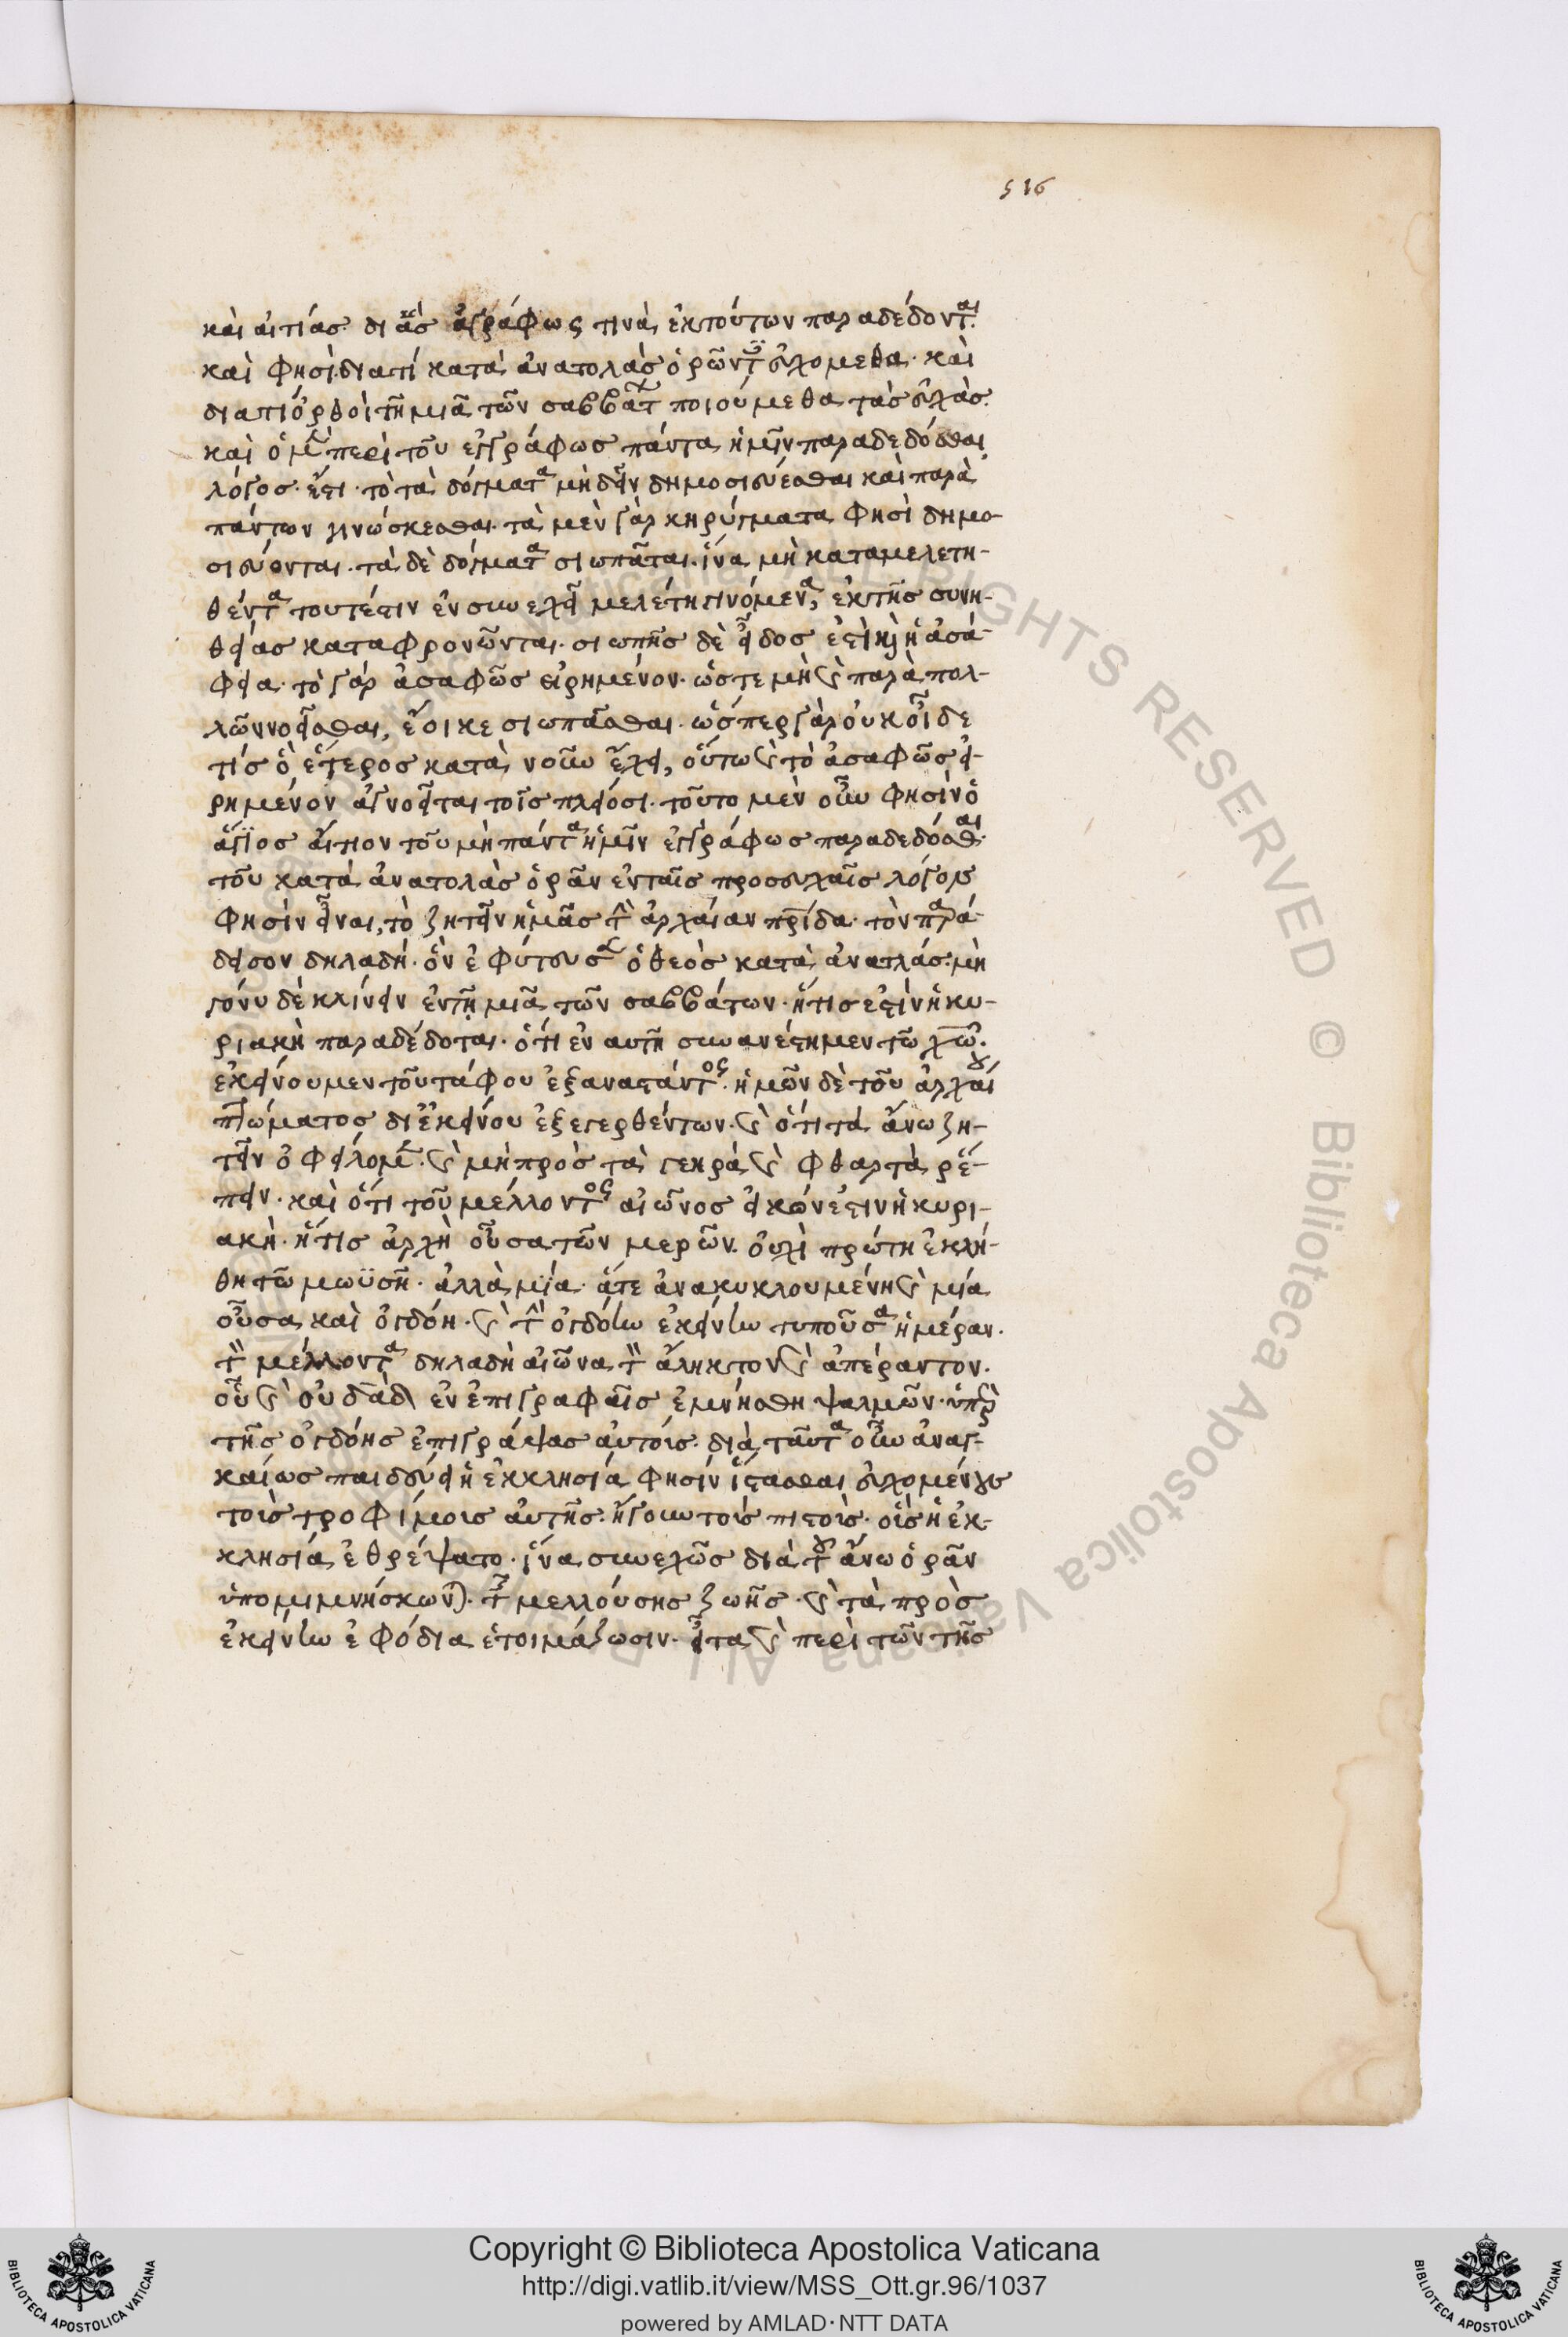 516
καὶ αἰτίας δι ἃς ἀγράφως τινὰ ἐκ τούτων παραδέδονται.
καὶ φησὶ διατί κατὰ ἀνατολὰς ὁρῶντες εὐχόμεθα. καὶ
διατί ὀρθοὶ τῇ μιᾷ τῶν σαββάτων ποιούμεθα τὰς εὐχάς.
καὶ ὁ μὲν περὶ τοῦ ἐγγράφως πάντα ἡμῖν παραδεδόσθαι
λόγος. ἔστι. τὸ τὰ δόγματα μὴ δεῖν δημοσιεύεσθαι καὶ παρὰ
πάντων γινώσκεσθαι. τὰ μὲν γὰρ κηρύγματα φησὶ δημο-
σιεύονται. τὰ δὲ δόγματα σιωπᾶται. ἵνα μὴ καταμελετη-
θέντα τουτέστιν ἐν συνεχεῖ μελέτῃ γινόμενα, ἐκ τῆς συνη-
θείας καταφρονῶνται. σιωπῆς δὲ εἶδος ἐστὶ καὶ ἡ ἀσά-
φεια. τὸ γὰρ ἀσαφῶς εἰρημένον. ὥστε μὴ καὶ παρὰ πολ-
λῶν νοεῖσθαι, ἔοικε σιωπᾶσθαι. ὥσπερ γὰρ οὐκ οἶδε
τίς ὃ ἕτερος κατὰ νοῦν ἔχει, οὕτω καὶ τὸ ἀσαφῶς εἰ-
ρημένον ἀγνοεῖται τοῖς πλείοσι. τοῦτο μὲν οὖν φησὶν ὁ
ἅγιος αἴτιον τοῦ μὴ πάντα ἡμῖν ἐγγράφως παραδεδόσθαι.
τοῦ κατὰ ἀνατολὰς ὁρᾶν ἐν ταῖς προσευχαῖς λόγον
φησὶν εἶναι, τὸ ζητεῖν ἡμᾶς τὴν ἀρχαίαν πρίδα. τὸν παρά-
δεισον δηλαδή. ὃν ἐφύτευσεν ὁ θεὸς κατὰ ἀνατολάς. μὴ
γόνυ δὲ κλίνειν ἐν τῇ μιᾷ τῶν σαββάτων. ἥτις ἐστὶν ἡ κυ-
ριακὴ παραδέδοται. ὅτι ἐν αὐτῇ συνανέστημεν τῷ χῷ.
ἐκείνου μὲν τοῦ τάφου ἐξαναστάντος. ἡμῶν δὲ τοῦ ἀρχαίου
πτώματος δι ἐκείνου ἐξεγερθέντων. καὶ ὅτι τὰ ἄνω ζη-
τεῖν ὀφείλομεν. καὶ μὴ πρὸς τὰ γεηρὰ καὶ φθαρτὰ ρέ-
πειν. καὶ ὅτι τοῦ μέλλοντος αἰῶνος εἰκών ἐστιν ἡ κυρι-
ακή. ἥτις ἀρχὴ οὖσα τῶν μερῶν. οὐχὶ πρώτη ἐκλή-
θη τῷ μωϋσῇ. ἀλλὰ μία. ἅτε ἀνακυκλουμένη καὶ μία
οὖσα καὶ ὀγδόη. καὶ τὴν ὀγδόην ἐκείνην τυποῦσα ἡμέραν.
τὸν μέλλοντα δηλαδὴ αἰῶνα τὸν ἄληκτον καὶ ἀπέραντον.
οὗ καὶ ὁ υδάδ ἐν ἐπιγραφαῖς ἐμνήσθη ψαλμῶν. ὑπὲρ
τῆς ὀγδόης ἐπιγράψας αὐτοῖς. διὰ ταῦτα οὖν ἀναγ-
καίως παιδεύει ἡ ἐκκλησία φησὶν ἵστασθαι εὐχομένους
τοὺς τροφίμους αὐτῆς. ἤγουν τοὺς πιστούς. οὓς ἡ ἐκ-
κλησία ἐθρέψατο. ἵνα συνεχῶς διὰ τοῦ ἄνω ὁρᾶν
ὑπομιμνήσκωνται. τῆς μελλούσης ζωῆς. καὶ τὰ πρὸς
ἐκείνην ἐφόδια ἑτοιμάζωσιν. εἶτα καὶ περὶ τῶν τῆς
Copyright © Biblioteca Apostolica Vaticana
http://digi.vatlib.it/view/MSS_Ott.gr.96/1037
powered by AMLAD·NTT DATA
BIBLIOTECA APOSTOLICA VATICANA
BIBLIOTECA APOSTOLICA VATICANA